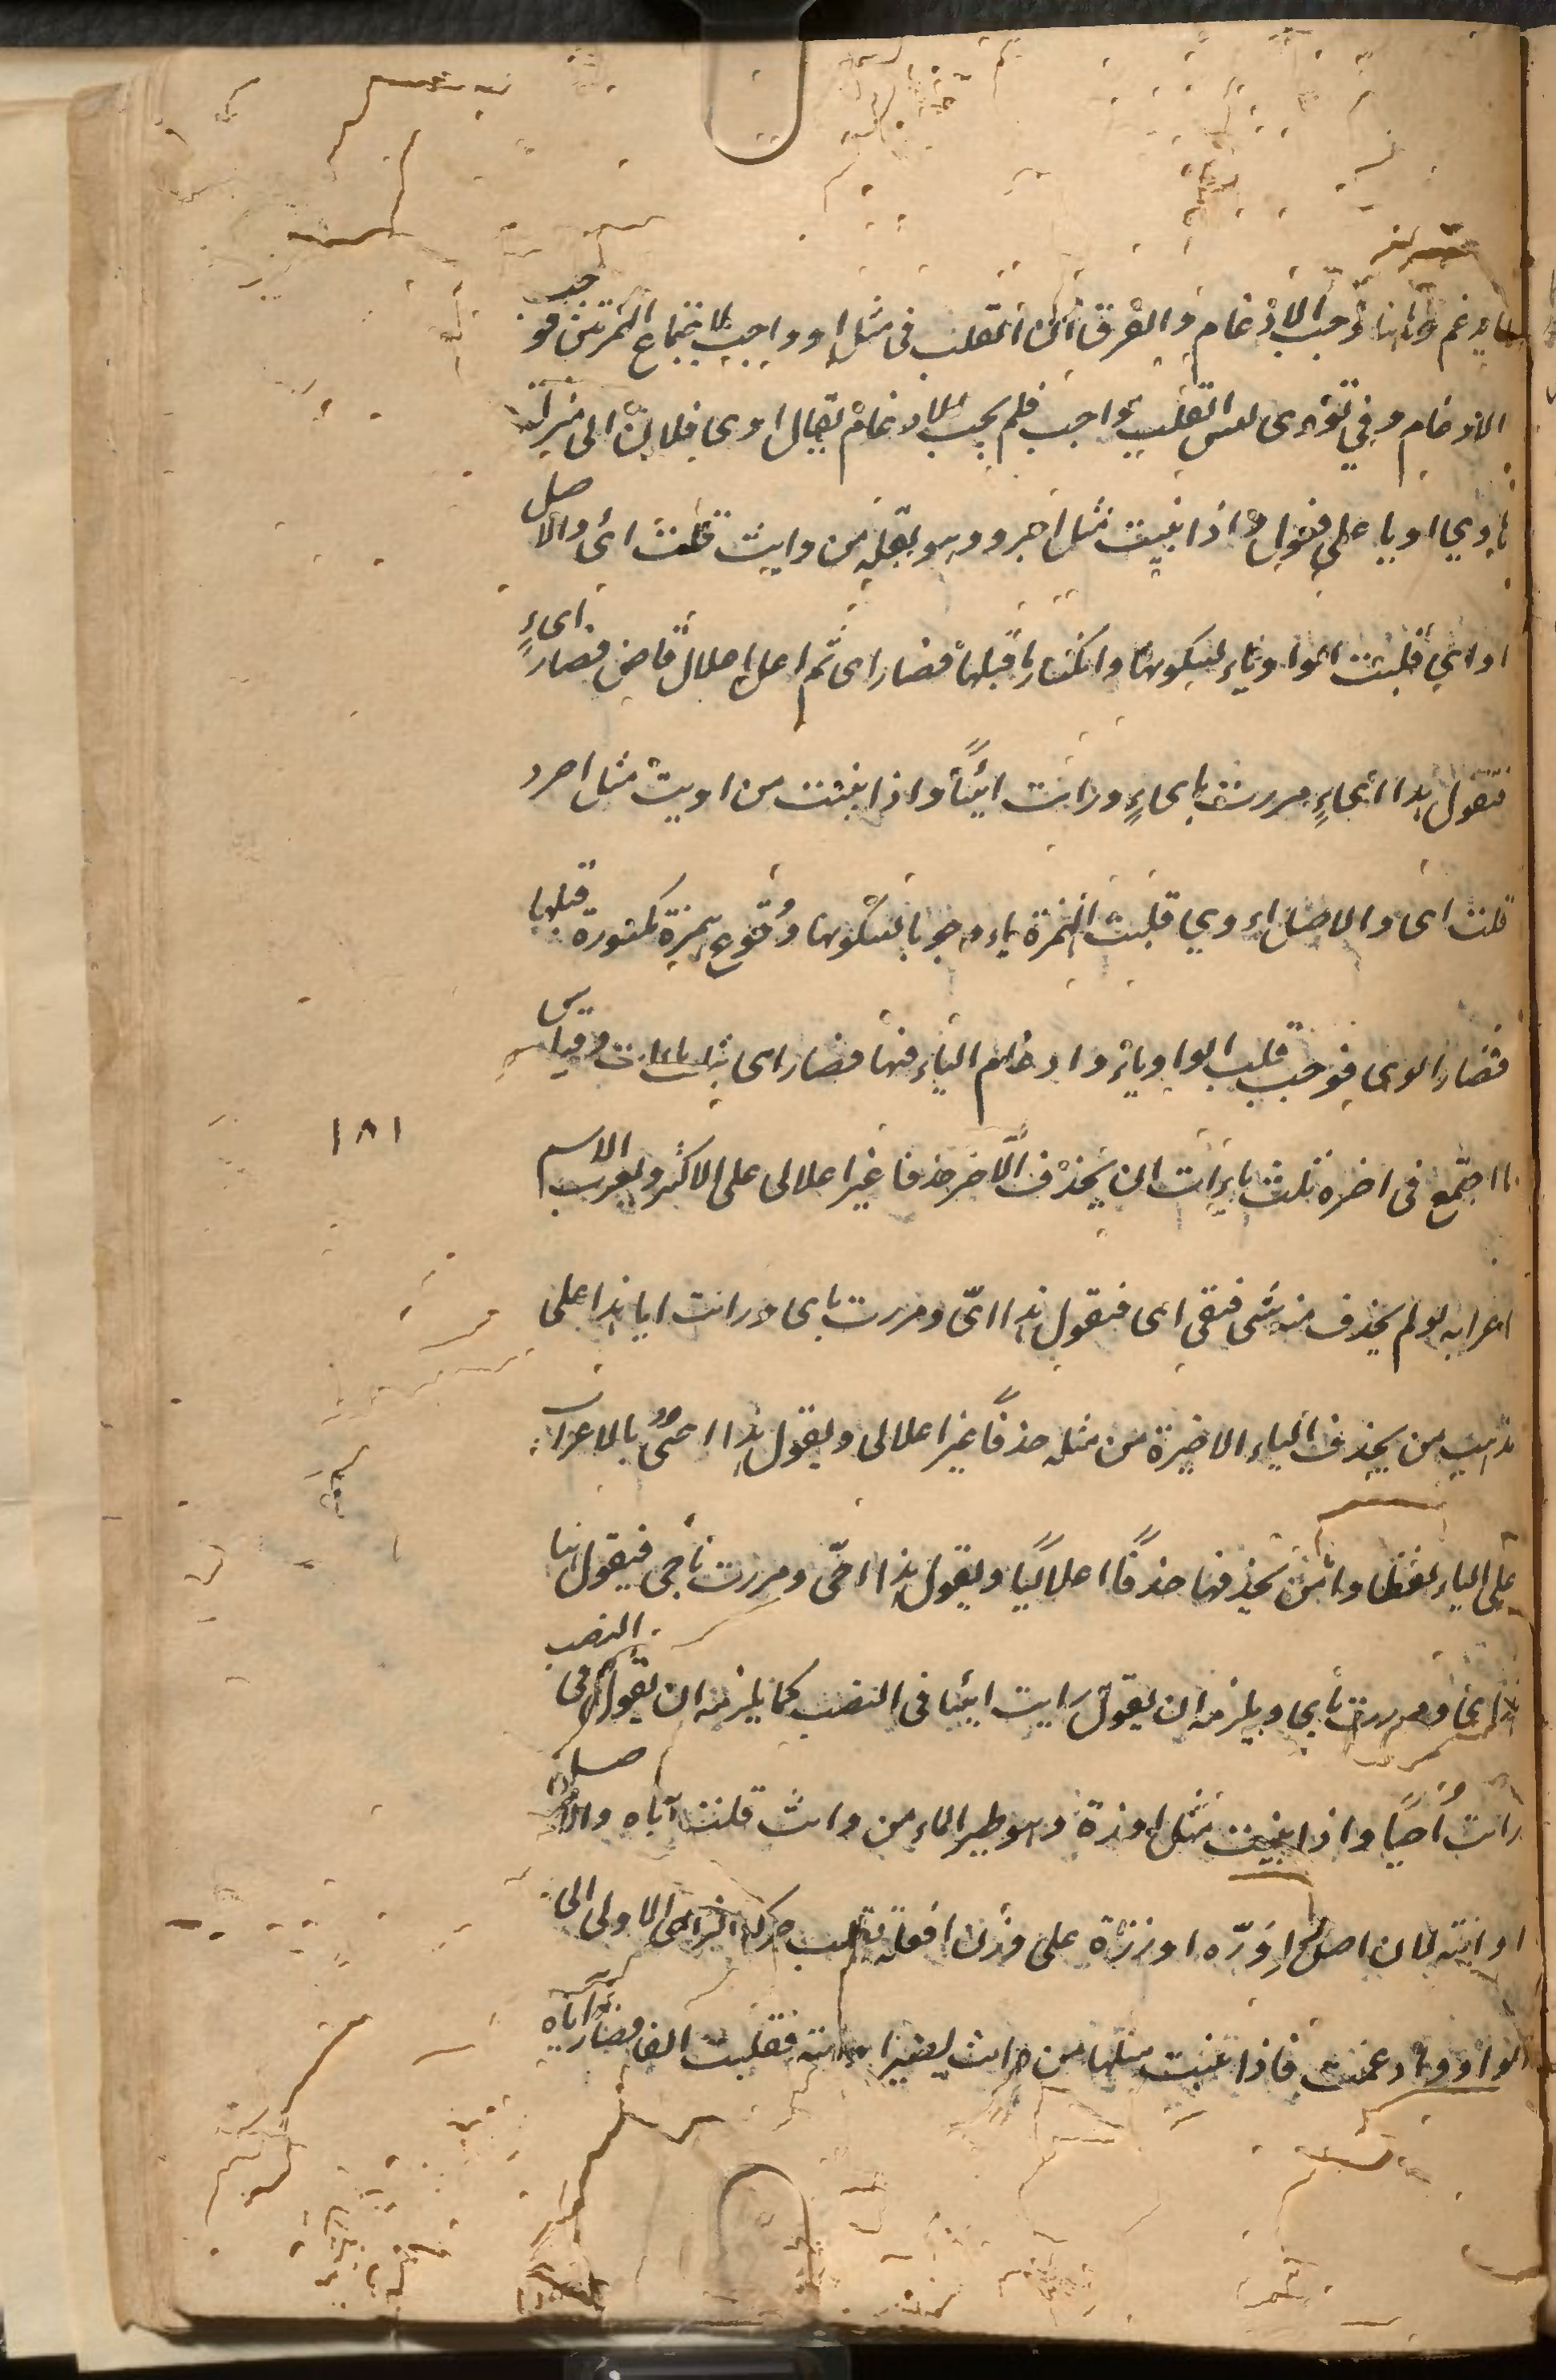 يدغم وههنا وجب الادغام والفرق ان القلب فى مثل او واجب لاجتماع الهمزتين فوجب
الادغام وفي تؤوى ليس القلب بواجب فلم يجب الادغام يقال اوى فلان الى منزله
ياوي اويا على فعول واذا بنيت مثل اجرد وهو بقلة من وايت قلت ائ والاصل
اواي قلبت الواو ياء لسكونها وانكسار ما قبلها فصار اى ثم اعل اعلال قاض فصار اىء
فتقول هذا اىءٍ مررت باىءٍ ورايت ائيًا واذا بنيت من اويت مثل اجرد
قلت اى والاصل اءوي قلبت الهمزة ياء وجوبا لسكونها وقوع همزة مكسورة قبلها
فصار اىوى فوجب قلب الواو ياء وادغام الياء فيها فصار اى بثلث ياءات وقياس
ما اجتمع فى اخره ثلث ياءات ان يحذف الآخر حذفا غير اعلالى على الاكثر ويعرب الاسم
اعرابه لو لم يحذف منه شى فبقى اى فتقول هذا اىّ ومررت باى ورايت ايا هذا على
مذهب من يحذف الياء الاخيرة من مثله حذفًا غير اعلالى ويقول هذا احىٌّ بالاعراب
على الياء لفظا واما من يحذفها حذفًا اعلاليًا ويقول هذا احىّ ومررت باحى فيقول هنا
هذا اىّ ومررت باى ويلزمه ان يقول رايت ايئا فى النصب كما يلزمه ان يقول فى النصب
رايت أُحيًا واذا بنيت مثل اوزة وهو طير الماء من وايت قلت آياه والاصل
اوايته لان اصل اوَزّه اوززة على وزن افعلة نقلت حركة الزاى الاولى الى
الواو وادغمت فاذا بنيت مثلها من وايت يصير فقلبت الفا فصار
١٨١